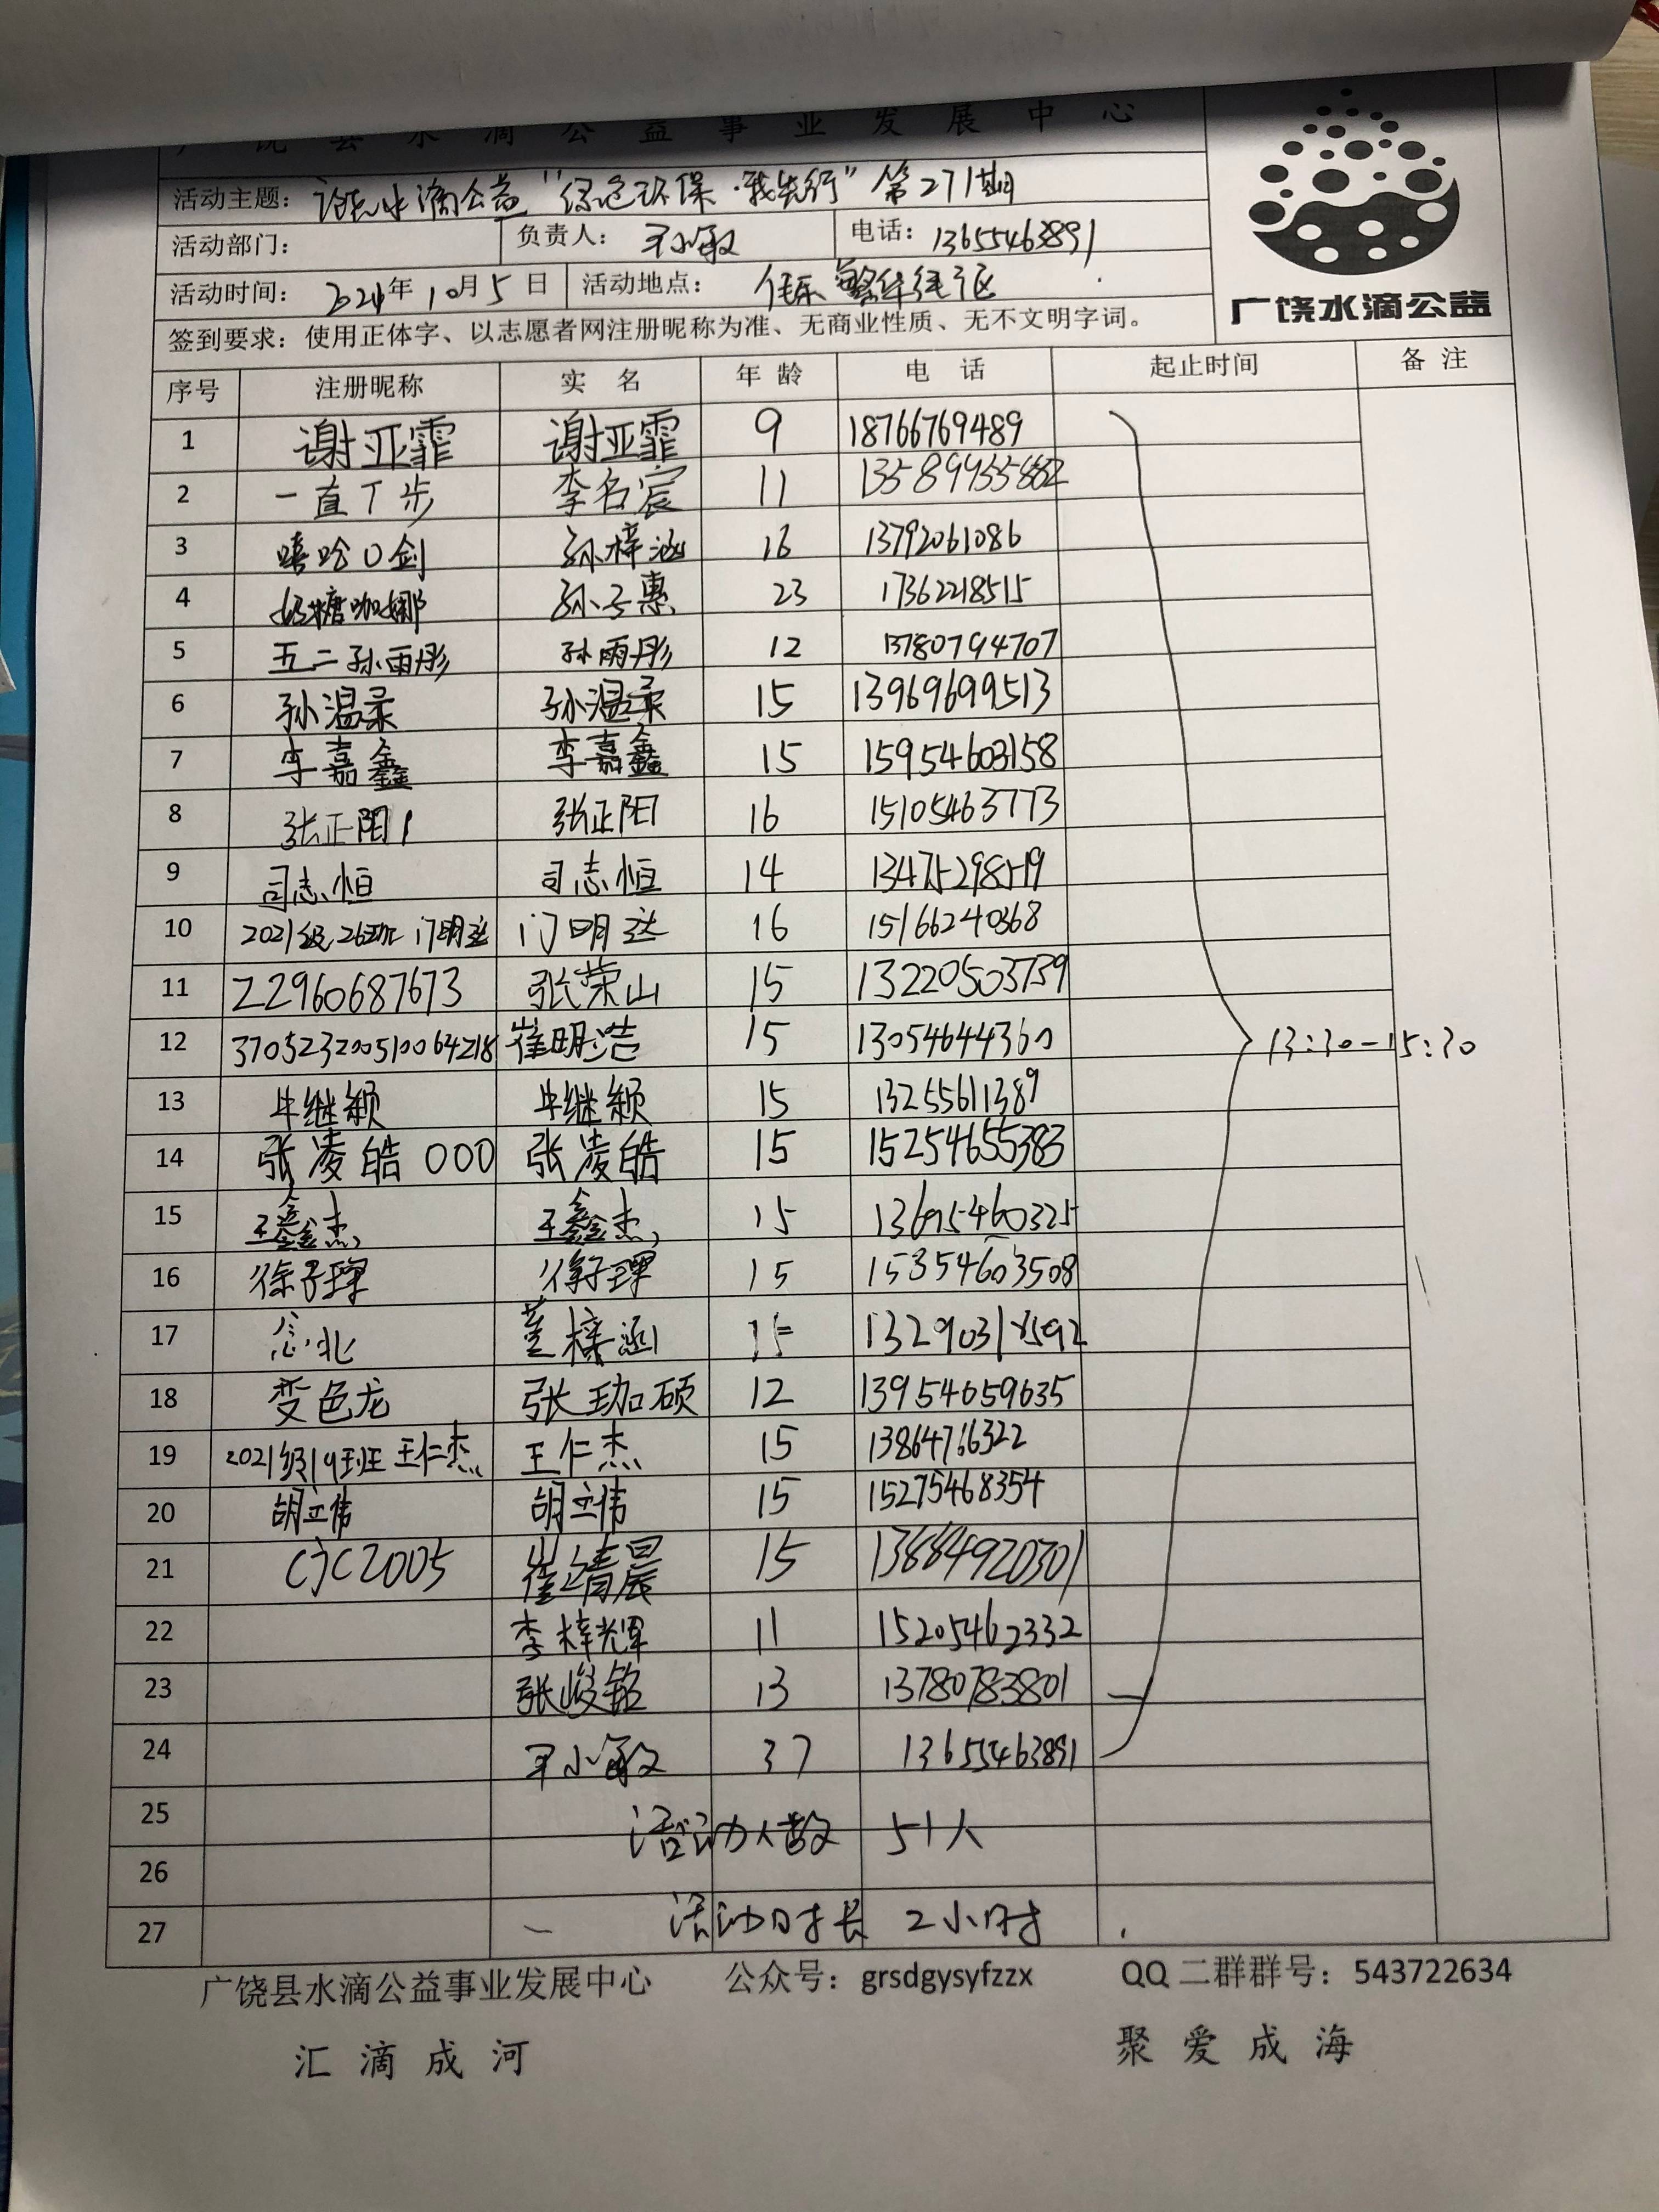 广饶县水滴公益事业发展中心
活动主题：水滴公益“绿色环保·我先行”第271期
活动部门： 负责人：王小敏 电话：13655463891
活动时间：2021年10月5日 活动地点：繁华
签到要求：使用正体字、以志愿者网注册昵称为准、无商业性质、无不文明字词。
广饶水滴公益
序号 注册昵称 实 名 年 龄 电 话 起止时间 备 注
1 谢亚霏 谢亚霏 9 18766769489
2 一直丅步 李名宸 11
3 嘻哈0剑 孙梓涵 16 13792061086
4 咖娜 孙子惠 23 17362218515
5 五二孙雨彤 孙雨彤 12 13780794707
6 孙温柔 孙温柔 15 13969699513
7 李嘉鑫 李嘉鑫 15 15954603158
8 张正阳1 张正阳 16 15105463773
9 司志恒 司志恒 14 13475298519
10 2021级26班门明达 门明达 16 15166240368
11 Z2960687673 张荣山 15 13220503739
12 370523200510064218 崔明浩 15 13054644360
13:30-15:30
13 牛继颖 牛继颖 15 13255611389
14 张凌皓000 张凌皓 15 15254655383
15 王鑫杰 王鑫杰 15 13695460325
16 徐子琿 徐子琿 15 15354603508
17 念北 董梓涵 15
18 变色龙 张珈硕 12 13954659635
19 2021级19班王仁杰 王仁杰 15 13864766322
20 胡立伟 胡立伟 15 15275468354
21 CJC2005 崔靖晨 15
22 李梓辉 11 15205462332
23 张峻铭 13 13780783801
24 王小敏 37 13655463891
25 活动人数 51人
26
27 活动时长 2小时
广饶县水滴公益事业发展中心 公众号：grsdgysyfzzx QQ二群群号：543722634
汇滴成河 聚爱成海